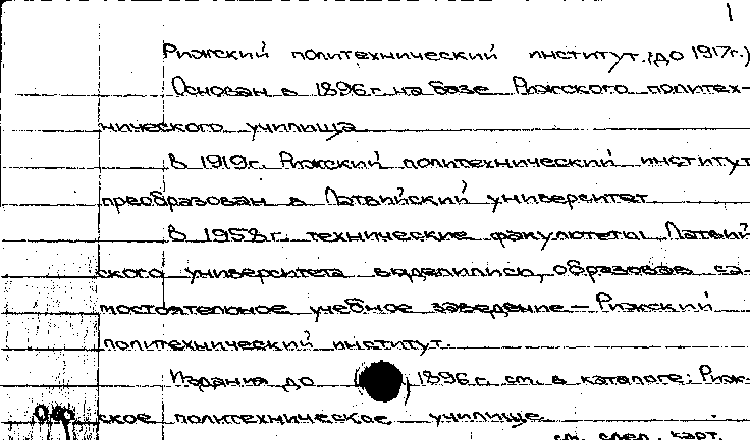 1
Рижский политехнический институт. (до 1917г.)
Основан в 1896г. на базе Рижского политех-
нического училища
В 1919г. Рижский политехнический институт
преобразован в Латвийский университет.
В 1958г. технические факультеты Латвий-
ского университета выделились, образовав са-
мостоятельное учебное заведение – Рижский
политехнический институт.
Издания до 1896г. см. в каталоге: Риж-
ское политехническое училище.
см. след. карт.